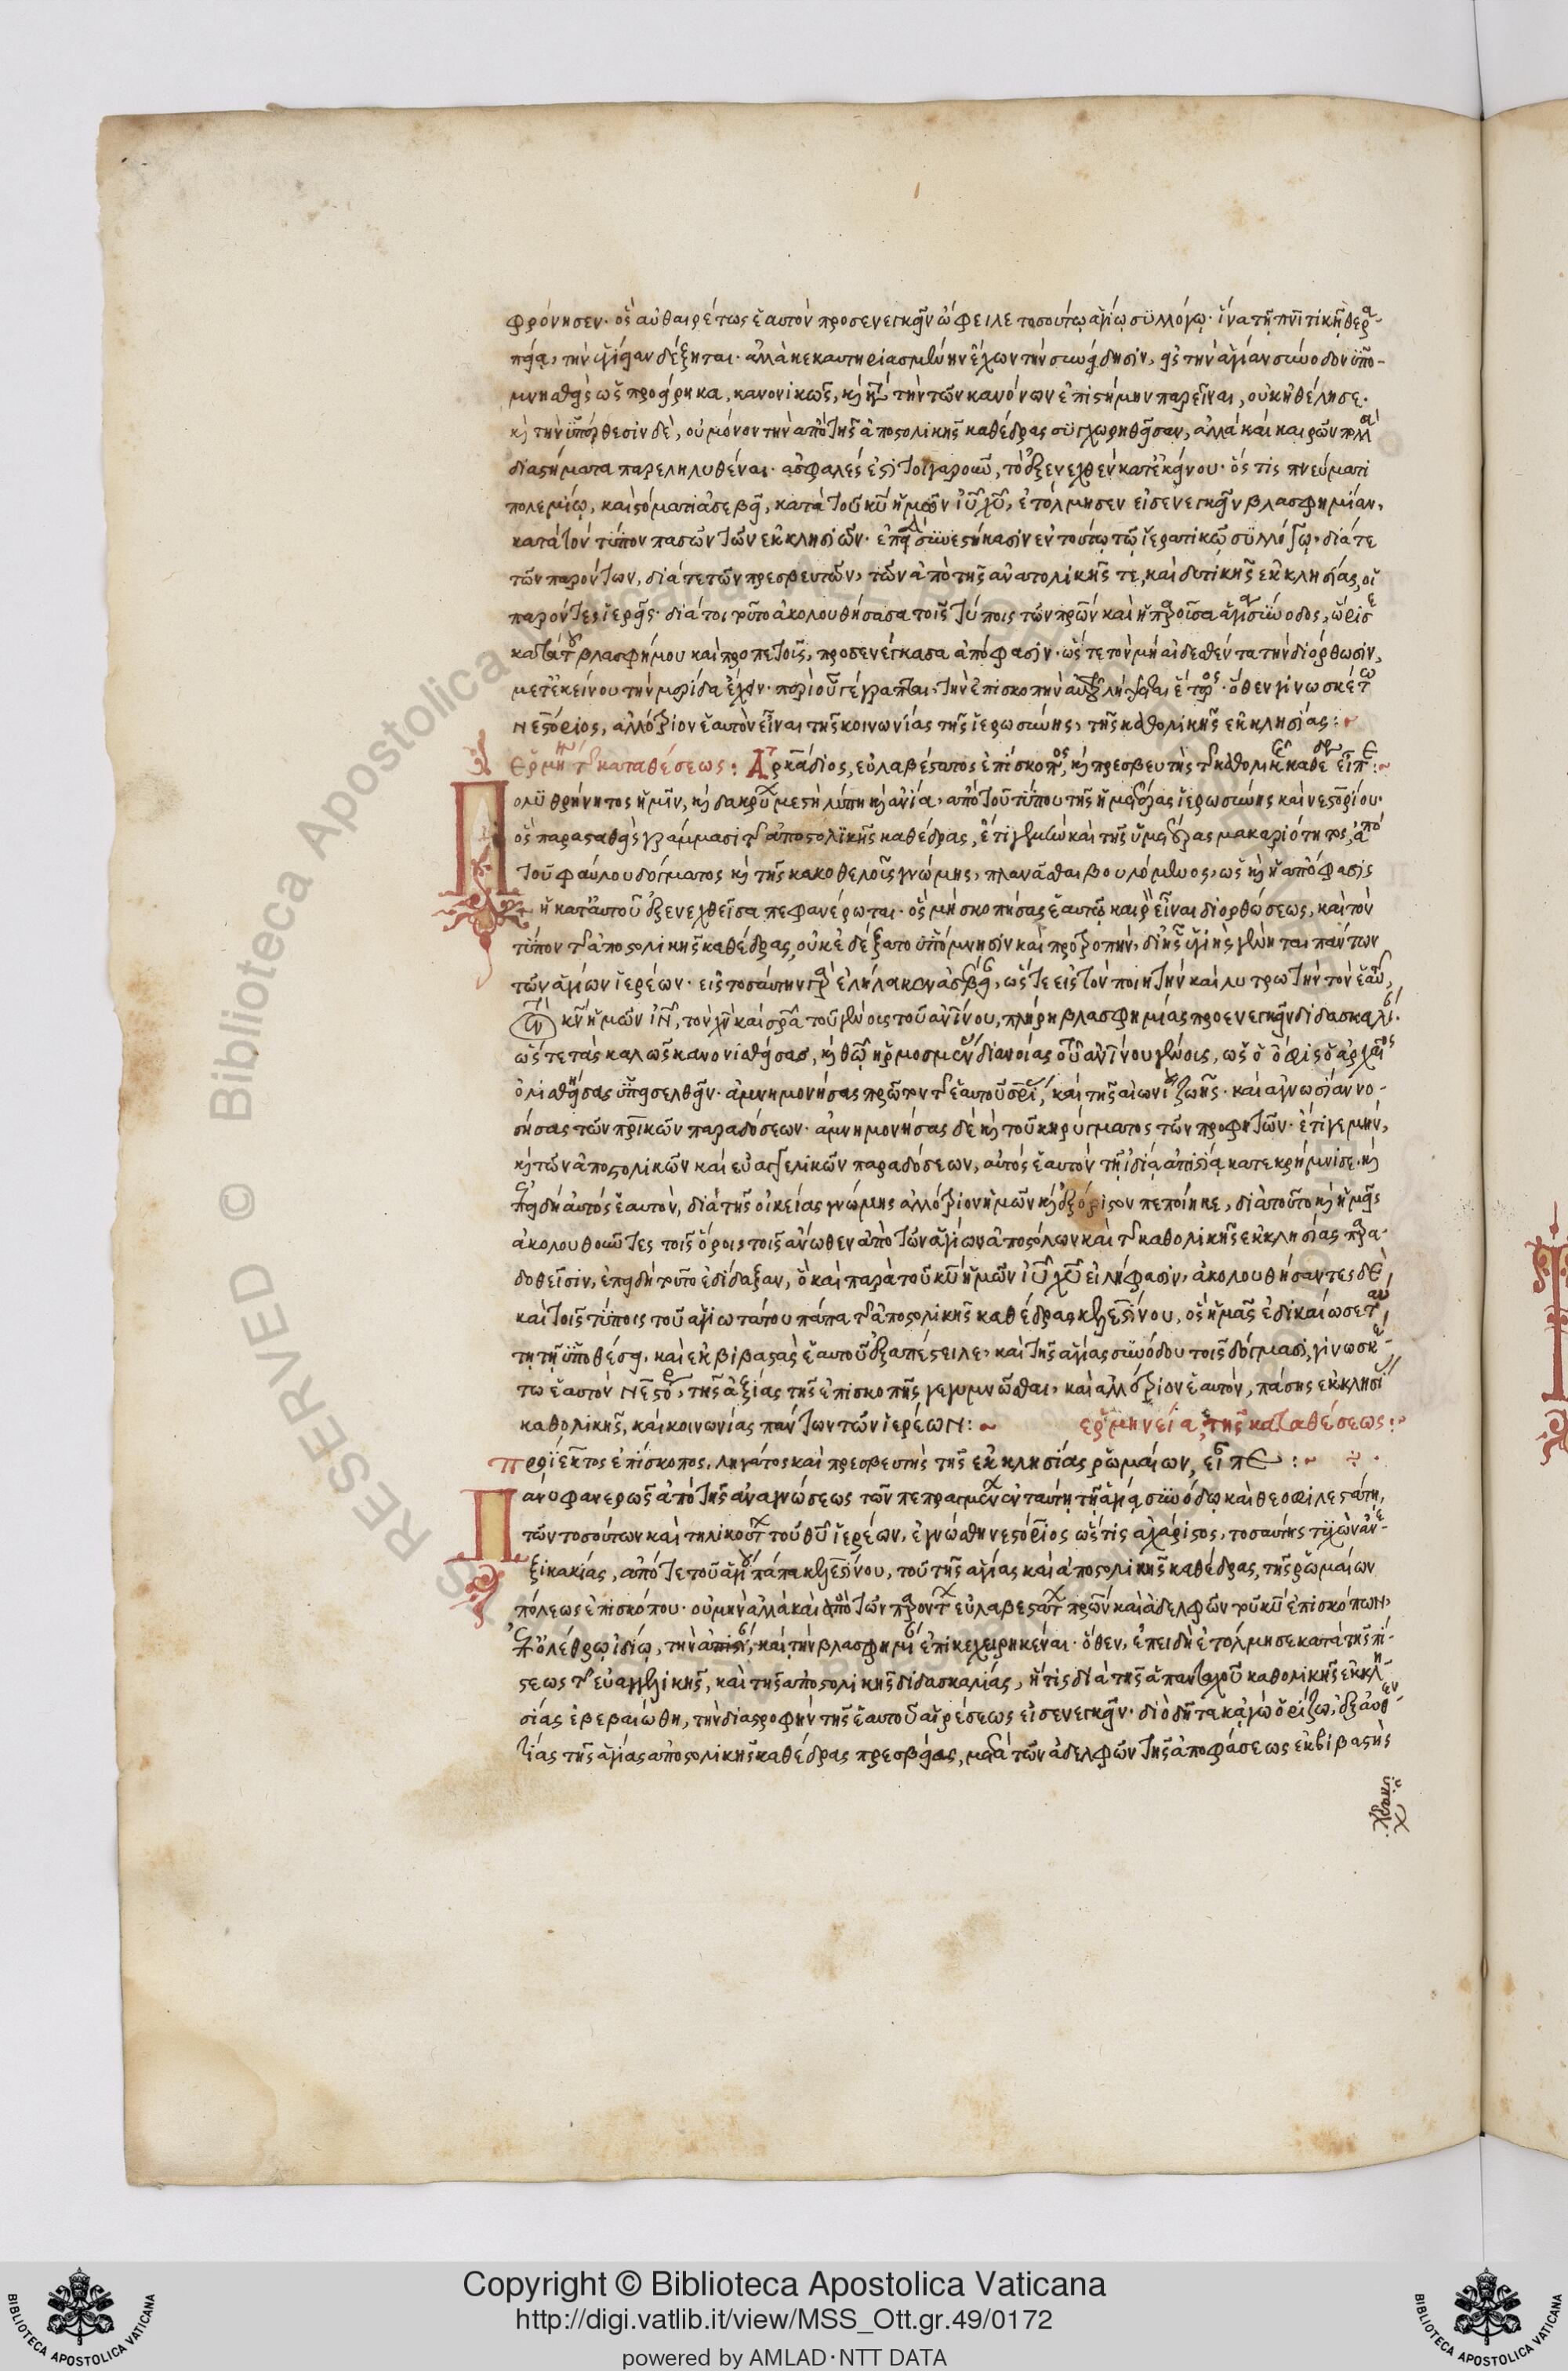 φρόνησεν· ὃς αὐθαιρέτως ἑαυτὸν προσενεγκεῖν ὤφειλε τοσούτω ἁγίω συλλόγω· ἵνα τῆ πνι τικῆ θερα
πεία, τὴν ὑγίειαν δέξηται· ἀλλὰ κεκαυτηριασμένην ἔχων τὴν συνείδησιν, εἰς τὴν ἁγίαν σύνοδον ὑπο-
μνησθεὶς ὡς προείρηκα, κανονικῶς, κὴ κατὰ τὴν τῶν κανόνων ἐπιστήμην παρεῖναι, οὐκ ἠθέλησε·
κὴ τὴν ὑπέρθεσιν δὲ, οὐ μόνον τὴν ἀπὸ τῆς ἀποστολικῆς καθέδρας συγχωρηθεῖσαν, ἀλλὰ καὶ καιρῶν πολλὰ
διαστήματα παρεληλυθέναι· ἀσφαλές ἐστι τοιγαροῦν, τὸ ἐξενεχθὲν κατ' ἐκείνου· ὅς τις πνεύματι
πολεμίω, καὶ στόματι ἀσεβεῖ, κατὰ τοῦ κυ ἡμῶν ιυ χυ, ἐτόλμησεν εἰσενεγκεῖν βλασφημίαν,
κατὰ τὸν τύπον πασῶν τῶν ἐκκλησιῶν· ἐπειδὴ συνεστήκασιν ἐν τούτω τῶ ἱερατικῶ συλλόγω· διά τε
τῶν παρόντων, διά τε τῶν πρεσβευτῶν, τῶν ἀπὸ τῆς ἀνατολικῆς τε, καὶ δυτικῆς ἐκκλησίας, οἱ
παρόντες ἱερεῖς· διά τοι τοῦτο ἀκολουθήσασα τοῖς τύποις τῶν πρων καὶ ἡ παροῦσα ἁγία σύνοδος, ὥρισε
κατὰ τοῦ βλασφήμου καὶ προπετοῦς, προσενέγκασα ἀπόφασιν· ὥστε τὸν μὴ αἰδεσθέντα τὴν διόρθωσιν,
μετ' ἐκείνου τὴν μερίδα ἔχειν· περὶ οὗ γέγραπται, τὴν ἐπισκοπὴν αὐτοῦ λήψεται ἕτερος· ὅθεν γινωσκέτω
Νεστόριος, ἀλλότριον ἑαυτὸν εἶναι τῆς κοινωνίας τῆς ἱερωσύνης, τῆς καθολικῆς ἐκκλησίας:~
Ερμη τ καταθέσεως: Ἀρκάδιος, εὐλαβέστατος ἐπίσκοπος, κὴ πρεσβευτὴς τ καθολικ καθεδ εἶπε:~
Πολυθρήνητος ἡμῖν, κὴ δακρύων μεστὴ λύπη κὴ ἀνία, ἀπὸ τοῦ τύπου τῆς ἡμετέρας ἱερωσύνης καὶ νεστορίου·
ὃς παρασταθεὶς γράμμασι τ ἀποστολϊκῆς καθέδρας, ἔτι γεμὴν καὶ τῆς ὑμετέρας μακαριότητος, ἀπὸ
τοῦ φαύλου δόγματος κὴ τῆς κακοθελοῦς γνώμης, πλανᾶσθαι βουλόμενος, ὡς κὴ ἡ ἀπόφασις
ἡ κατ' αὐτοῦ ἐξενεχθεῖσα πεφανέρωται· ὃς μὴ σκοπήσας ἑαυτῷ καιρὸν εἶναι διορθώσεως, καὶ τὸν
τύπον τ ἀποστολικῆς καθέδρας, οὐκ ἐδέξατο ὑπόμνησιν καὶ προτροπήν, δι' ἧς ὑγιὴς γένηται πάντων
τῶν ἁγίων ἱερέων· εἰς τοσαύτην γὰρ ἐλήλακεν ἀσέβειαν, ὥστε εἰς τὸν ποιητὴν καὶ λυτρωτὴν τὸν ἑαυ
τῶν κν ἡμῶν ιν, τὸν χν καὶ σρα τοῦ γένους τοῦ ανινου, πλήρη βλασφημίας προενεγκεῖν διδασκαλί·
ὥστε τὰς καλῶς κανονισθείσας, κὴ θῶ ἡρμοσμένας διανοίας τοῦ ανινου γένους, ὡς ὁ ὄφις ὁ ἀρχαῖος
ὀλισθήσας ὑπεισελθεῖν· ἀμνημονήσας πρῶτον τ ἑαυτοῦ σρι, καὶ τῆς αἰωνί ζωῆς· καὶ ἀγνωσίαν νο-
σήσας τῶν πρικῶν παραδόσεων· ἀμνημονήσας δὲ κὴ τοῦ κηρύγματος τῶν προφητῶν· ἔτι γε μὴν,
κὴ τῶν ἀποστολικῶν καὶ εὐαγγελικῶν παραδόσεων, αὐτὸς ἑαυτὸν τῆ ἰδία ἀπιστία κατεκρήμνισε· κὴ
ἐπειδὴ αὐτὸς ἑαυτὸν, διὰ τῆς οἰκείας γνώμης ἀλλότριον ἡμῶν κὴ ἐξόριστον πεποίηκε, διὰ τοῦτο κὴ ἡμεῖς
ἀκολουθοῦντες τοῖς ὅροις τοῖς ἄνωθεν ἀπὸ τῶν ἁγίων ἀποστόλων καὶ τ καθολικῆς ἐκκλησίας παρα-
δοθεῖσιν, ἐπειδὴ τοῦτο ἐδίδαξαν, ὃ καὶ παρὰ τοῦ κυ ἡμῶν ιυ χυ εἰλήφασιν, ἀκολουθήσαντες δὲ
καὶ τοῖς τύποις τοῦ ἁγιωτάτου πάπα τ ἀποστολικῆς καθέδρας κελεστίνου, ὃς ἡμᾶς ἐδικαίωσε ταύ
τη τῆ ὑποθέσει, καὶ ἐκβιβαστὰς ἑαυτοῦ ἐξαπέστειλε, καὶ τῆς ἁγίας συνόδου τοῖς δόγμασι, γινωσκέ
τω ἑαυτὸν Νεστόρ, τῆς ἀξίας τῆς ἐπισκοπῆς γεγυμνῶσθαι, καὶ ἀλλότριον ἑαυτὸν, πάσης ἐκκλησί
καθολικῆς, καὶ κοινωνίας πάντων τῶν ἱερέων:~ ἑρμηνεία, τῆς καταθέσεως:~
Προϊεκτος ἐπίσκοπος, ληγάτος καὶ πρεσβευτὴς τῆς ἐκκλησίας ῥωμαίων, εἶπε:~
Πανυ φανερῶς ἀπὸ τῆς ἀναγνώσεως τῶν πεπραγμένων ἐν ταύτη τῆ ἁγία συνόδω καὶ θεοφιλεστάτη,
τῶν τοσούτων καὶ τηλικούτων τοῦ θυ ἱερέων, ἐγνώσθη νεστόριος ὥς τις ἀχάριστος, τοσαύτης τυχὼν ἀνε-
ξικακίας, ἀπό τε τοῦ ἁγί πάπα κελεστίνου, τοῦ τῆς ἁγίας καὶ ἀποστολικῆς καθέδρας, τῆς ῥωμαίων
πόλεως ἐπισκόπου· οὐ μὴν ἀλλὰ καὶ ἀπὸ τῶν παρόντων εὐλαβεστάτων πρων καὶ ἀδελφῶν τοῦ κυ ἐπισκόπων,
ἐπ' ὀλέθρω ἰδίω, τὴν ἀπιστί, καὶ τὴν βλασφημί ἐπικεχειρηκέναι· ὅθεν, ἐπειδὴ ἐτόλμησε κατὰ τῆς πί-
στεως τ εὐαγγελικῆς, καὶ τῆς ἀποστολικῆς διδασκαλίας, ἥτις διὰ τῆς ἁπανταχοῦ καθολικῆς ἐκκλη
σίας ἐβεβαιώθη, τὴν διαστροφὴν τῆς ἑαυτοῦ αἱρέσεως εἰσενεγκεῖν· διὸ δῆτα κἀγὼ ὁρίζω, ἐξ αὐθεν
τίας τῆς ἁγίας ἀποστολικῆς καθέδρας πρεσβείας, μετὰ τῶν ἀδελφῶν τῆς ἀποφάσεως ἐκβιβαστὴς
Copyright © Biblioteca Apostolica Vaticana
http://digi.vatlib.it/view/MSS_Ott.gr.49/0172
powered by AMLAD·NTT DATA